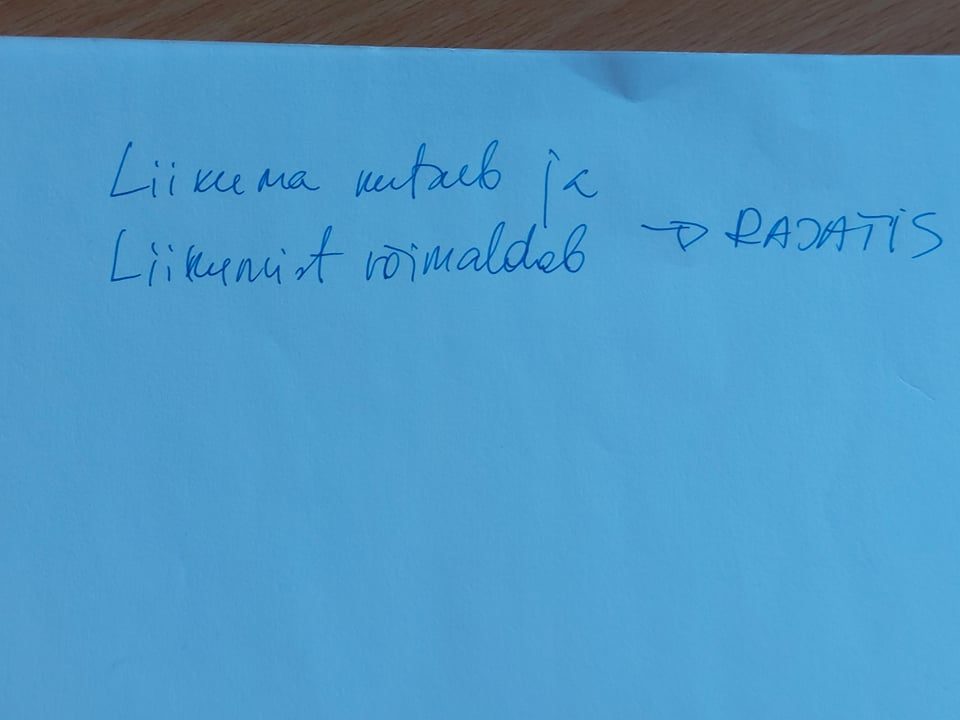 Liikuma kutsub ja
Liikumist võimaldab → RAJATIS